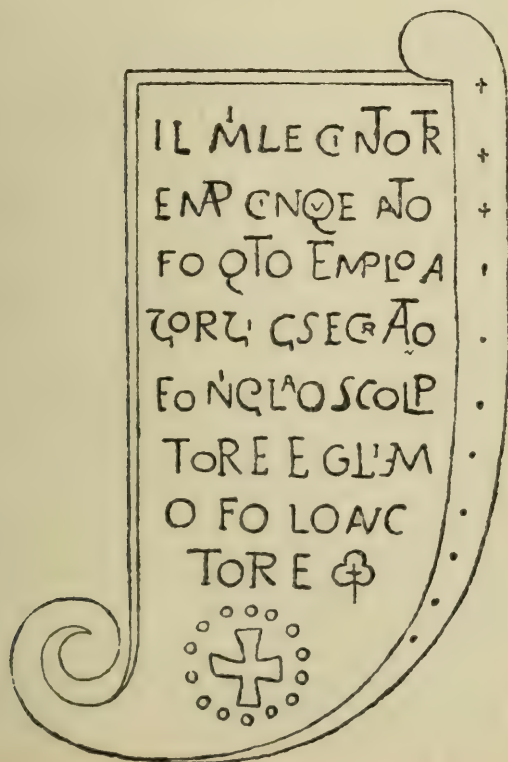 IL MILE CINTO TR
ENP CINQVE NATO
FO QTO TEMPLO A
ZORZI CSECRATO
FO NICLAO SCOLP
TORE E GLIM
O FO LO AVC
TORE